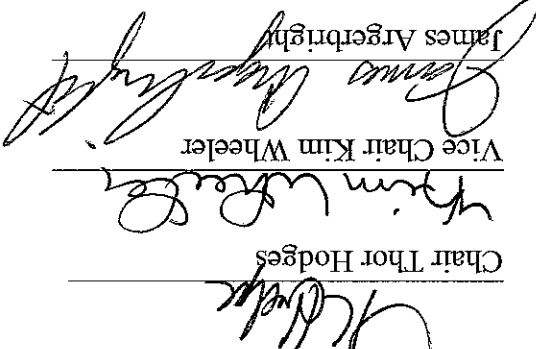 Chair Thor Hodges
Kim Wheeler
Vice Chair Kim Wheeler
James Argerbright
James Argerbright